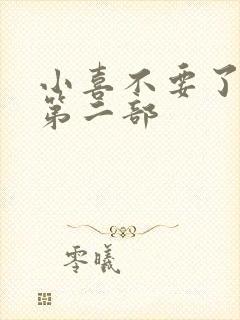 小喜不要了
第二部
零曦